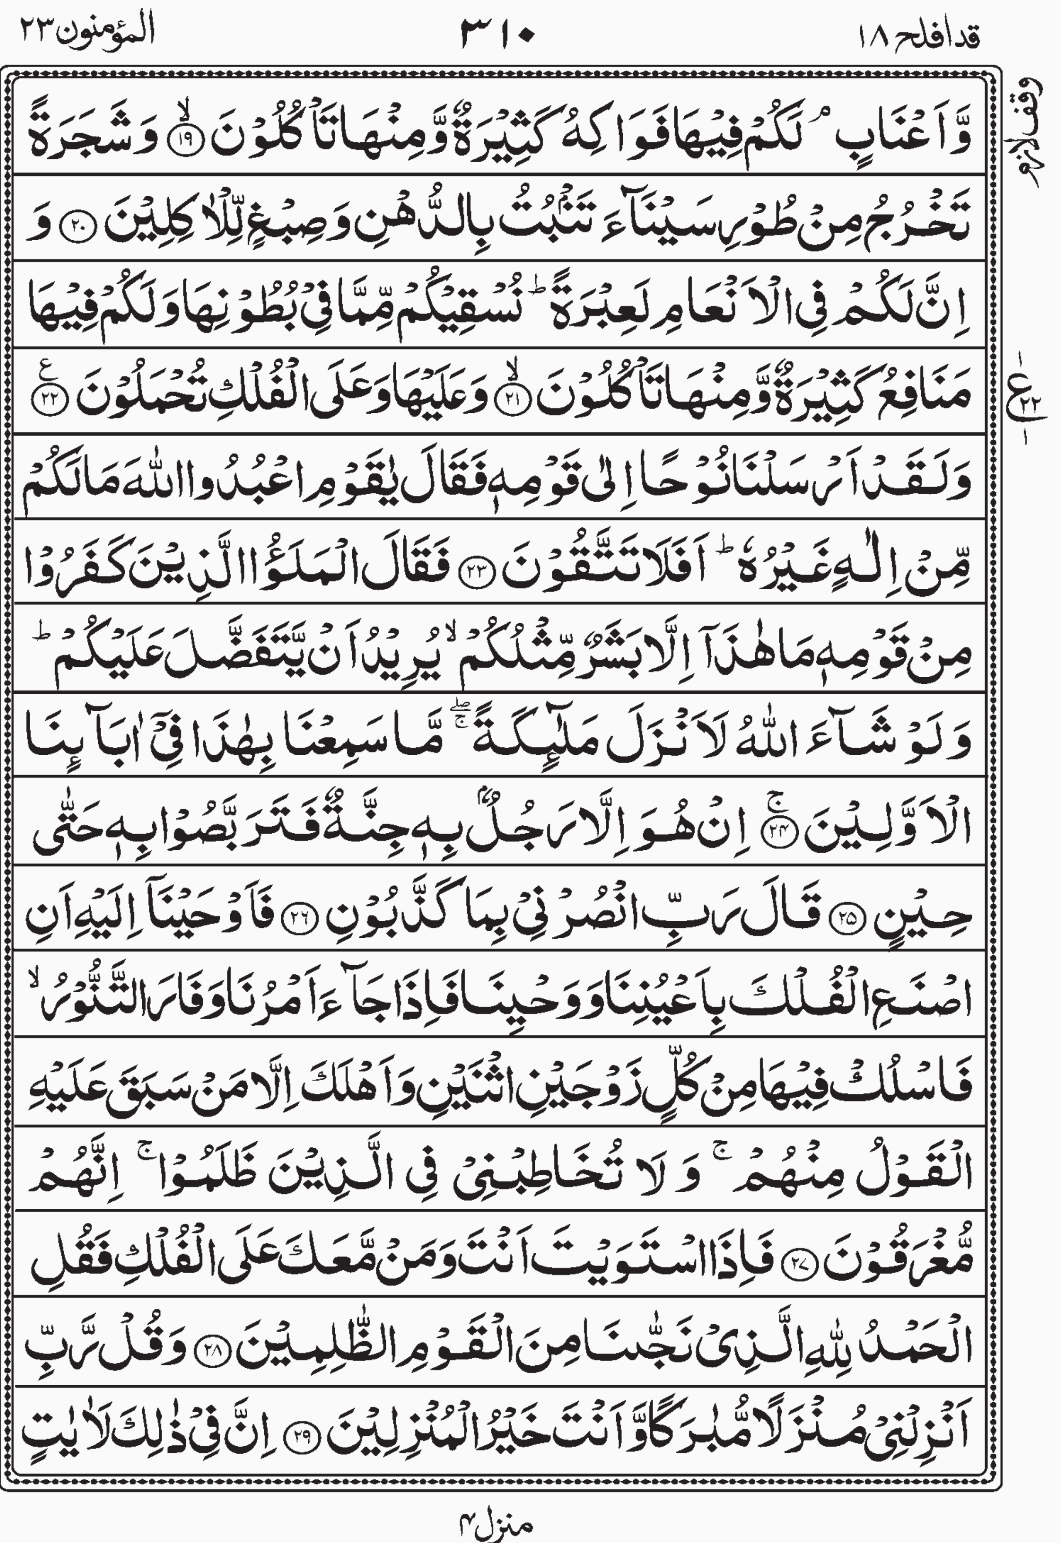 قد افلح ١٨
٣١٠
المؤمنون ٢٣
وقف لازم
وَّاَعْنَابٍ ۘ لَكُمْ فِيْهَا فَوَاكِهُ كَثِيْرَةٌ وَّمِنْهَا تَاْكُلُوْنَ ۙ﴿١٩﴾ وَشَجَرَةً
تَخْرُجُ مِنْ طُوْرِ سَيْنَآءَ تَنْۢبُتُ بِالدُّهْنِ وَصِبْغٍ لِّلْاٰكِلِيْنَ ﴿٢٠﴾ وَ
اِنَّ لَكُمْ فِى الْاَنْعَامِ لَعِبْرَةً ؕ نُسْقِيْكُمْ مِّمَّا فِىْ بُطُوْنِهَا وَلَكُمْ فِيْهَا
مَنَافِعُ كَثِيْرَةٌ وَّمِنْهَا تَاْكُلُوْنَ ۙ﴿٢١﴾ وَعَلَيْهَا وَعَلَى الْفُلْكِ تُحْمَلُوْنَ ﴿٢٢﴾ ع
ع ٢٢
وَلَقَدْ اَرْسَلْنَا نُوْحًا اِلٰى قَوْمِهٖ فَقَالَ يٰقَوْمِ اعْبُدُوا اللّٰهَ مَا لَكُمْ
مِّنْ اِلٰهٍ غَيْرُهٗ ؕ اَفَلَا تَتَّقُوْنَ ﴿٢٣﴾ فَقَالَ الْمَلَؤُا الَّذِيْنَ كَفَرُوْا
مِنْ قَوْمِهٖ مَا هٰذَآ اِلَّا بَشَرٌ مِّثْلُكُمْ ۙ يُرِيْدُ اَنْ يَّتَفَضَّلَ عَلَيْكُمْ ؕ
وَلَوْ شَآءَ اللّٰهُ لَاَنْزَلَ مَلٰٓئِكَةً ۖۚ مَّا سَمِعْنَا بِهٰذَا فِىْٓ اٰبَآئِنَا
الْاَوَّلِيْنَ ۚ﴿٢٤﴾ اِنْ هُوَ اِلَّا رَجُلٌۢ بِهٖ جِنَّةٌ فَتَرَبَّصُوْا بِهٖ حَتّٰى
حِيْنٍ ﴿٢٥﴾ قَالَ رَبِّ انْصُرْنِىْ بِمَا كَذَّبُوْنِ ﴿٢٦﴾ فَاَوْحَيْنَآ اِلَيْهِ اَنِ
اصْنَعِ الْفُلْكَ بِاَعْيُنِنَا وَوَحْيِنَا فَاِذَا جَآءَ اَمْرُنَا وَفَارَ التَّنُّوْرُ ۙ
فَاسْلُكْ فِيْهَا مِنْ كُلٍّ زَوْجَيْنِ اثْنَيْنِ وَاَهْلَكَ اِلَّا مَنْ سَبَقَ عَلَيْهِ
الْقَوْلُ مِنْهُمْ ۚ وَلَا تُخَاطِبْنِىْ فِى الَّذِيْنَ ظَلَمُوْا ۚ اِنَّهُمْ
مُّغْرَقُوْنَ ﴿٢٧﴾ فَاِذَا اسْتَوَيْتَ اَنْتَ وَمَنْ مَّعَكَ عَلَى الْفُلْكِ فَقُلِ
الْحَمْدُ لِلّٰهِ الَّذِىْ نَجّٰىنَا مِنَ الْقَوْمِ الظّٰلِمِيْنَ ﴿٢٨﴾ وَقُلْ رَّبِّ
اَنْزِلْنِىْ مُنْزَلًا مُّبٰرَكًا وَّاَنْتَ خَيْرُ الْمُنْزِلِيْنَ ﴿٢٩﴾ اِنَّ فِىْ ذٰلِكَ لَاٰيٰتٍ
منزل ۴